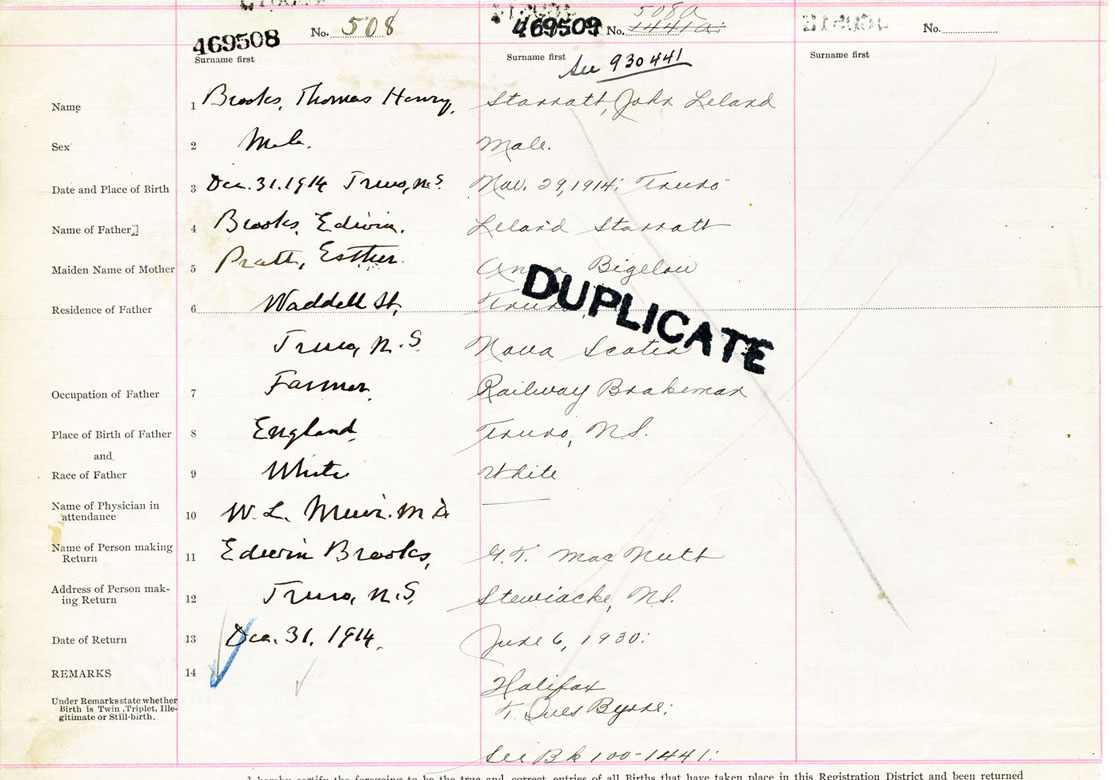 469508 No. 508 469509 No. 508a 1441a No.
Surname first Surname first See 930441 Surname first
Name 1 Brooks, Thomas Henry, Starratt, John Leland
Sex 2 Male. Male.
Date and Place of Birth 3 Dec. 31. 1914 Truro, N.S. Nov. 29, 1914; Truro
Name of Father 4 Brooks, Edwin. Leland Starratt
Maiden Name of Mother 5 Pratt, Esther. Anna Bigelow
Residence of Father 6 Waddell St, Truro,
Truro, N.S. Nova Scotia
DUPLICATE
Occupation of Father 7 Farmer. Railway Brakeman
Place of Birth of Father 8 England, Truro, N.S.
and
Race of Father 9 White White
Name of Physician in
attendance 10 W. L. Muir. M.D.
Name of Person making
Return 11 Edwin Brooks, G.T. MacNutt
Address of Person mak-
ing Return 12 Truro, N.S. Stewiacke, N.S.
Date of Return 13 Dec. 31. 1914. June 6, 1930.
REMARKS 14 Halifax
Under Remarks state whether
Birth is Twin, Triplet, Ille-
gitimate or Still-birth.
Byrne;
See Bk 100-1441.
I hereby certify the foregoing to be the true and correct entries of all Births that have taken place in this Registration District and been returned